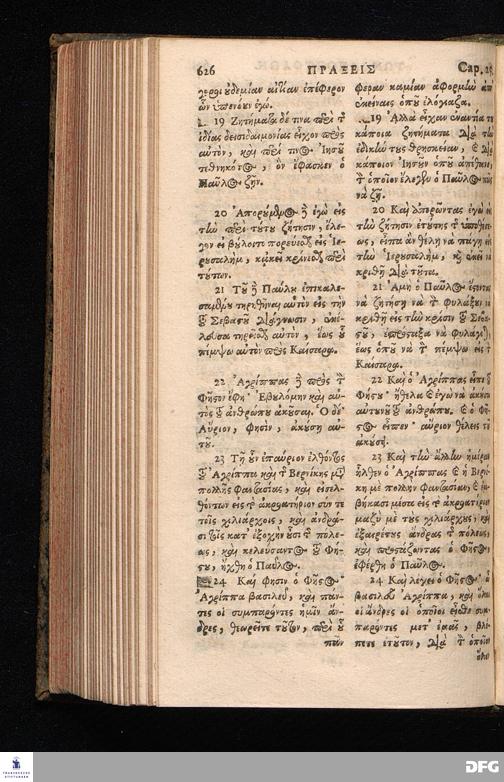 626 ΠΡΑΞΕΙΣ Cap. 25
γοροι ουδεμίαν αἰτίαν ἐπέφερον
ὧν ὑπενόουν ἐγώ.
19 Ζητήματα δέ τινα περὶ τ
ἰδίας δεισιδαιμονίας εἶχον πρὸς
αὐτὸν, καὶ περί τινος Ἰησοῦ
τεθνηκότος, ὃν ἔφασκεν ὁ
Παῦλος ζῆν.
20 Ἀπορούμενος δὲ ἐγὼ εἰς
τὴν περὶ τούτου ζήτησιν, ἔλε-
γον εἰ βούλοιτο πορεύεσθαι εἰς Ἱε-
ρουσαλὴμ, κακεῖ κρίνεσθαι περὶ
τούτων.
21 Τοῦ δὲ Παύλου ἐπικαλε-
σαμένου τηρηθῆναι αὐτὸν εἰς τὴν
τοῦ Σεβαστοῦ διάγνωσιν, ἐκέ-
λευσα τηρεῖσθαι αὐτὸν, ἕως οὗ
πέμψω αὐτὸν πρὸς Καίσαρα.
22 Ἀγρίππας δὲ πρὸς τὸν
Φῆστον ἔφη· Ἐβουλόμην καὶ αὐ-
τὸς τοῦ ἀνθρώπου ἀκοῦσαι. Ὁ δὲ
Αὔριον, φησὶν, ἀκούσῃ αὐ-
τοῦ.
23 Τῇ οὖν ἐπαύριον ἐλθόντος
τοῦ Ἀγρίππα καὶ τῆς Βερνίκης μετὰ
πολλῆς φαντασίας, καὶ εἰσελ-
θόντων εἰς τὸ ἀκροατήριον σύν τε
τοῖς χιλιάρχοις, καὶ ἀνδρά-
σι τοῖς κατ' ἐξοχὴν οὖσι τῆς πόλε-
ως, καὶ κελεύσαντος τοῦ Φή-
στου, ἤχθη ὁ Παῦλος.
24 Καί φησιν ὁ Φῆστος·
Ἀγρίππα βασιλεῦ, καὶ πάν-
τες οἱ συμπαρόντες ἡμῖν ἄν-
δρες, θεωρεῖτε τοῦτον, περὶ οὗ
πᾶν
φεραν καμίαν ἀφορμὴν ἀπ
ἐκείναις ὁποῦ ἐλόγιαζα.
19 Ἀλλὰ εἶχαν ἐναντία τ
κάποια ζητήματα διὰ τὴν
ἐδικήν τους θρησκείαν, καὶ διὰ
κάποιον Ἰησοῦν ὁποῦ ἀπέθανε,
τὸν ὁποῖον ἔλεγεν ὁ Παῦλος πῶς
νὰ ζῇ.
20 Καὶ ἀπορῶντας ἐγὼ εἰς
τὴν ζήτησιν ἐτούτης τῆς ὑποθέσ-
εως, εἶπα ἂν θέλῃ νὰ πάγῃ εἰς
τὴν Ἱερουσαλὴμ, καὶ ἐκεῖ νὰ
κριθῇ διὰ τοῦτα.
21 Ἀμὴ ὁ Παῦλος ἔστοντας
νὰ ζητήσῃ νὰ τὸν φυλάξουν νὰ
κριθῇ εἰς τὴν κρίσιν τοῦ Σεβα-
στοῦ, ἐπρόσταξα νὰ φυλάγεται,
ἕως ὁποῦ νὰ τὸν πέμψω εἰς τὸν
Καίσαρα.
22 Καὶ ὁ Ἀγρίππας εἶπε τοῦ
Φήστου· ἤθελα καὶ ἐγὼ νὰ ἀκούσω
αὐτουνοῦ τοῦ ἀνθρώπου. Καὶ ὁ Φῆ-
στος εἶπεν· αὔριον θέλεις τὸν
ἀκούσῃ.
23 Καὶ τὴν ἄλλην ἡμέραν
ἦλθεν ὁ Ἀγρίππας καὶ ἡ Βερνί-
κη μὲ πολλὴν φαντασίαν, καὶ ἐ-
βήκασι μέσα εἰς τὸ ἀκροατήριον
μαζὺ μὲ τοὺς χιλιάρχους, καὶ
ἐξαιρέτους ἄνδρας τῆς πόλεως,
καὶ προστάζοντας ὁ Φῆστος
ἐφέρθη ὁ Παῦλος.
24 Καὶ λέγει ὁ Φῆστος· ὦ
βασιλεῦ Ἀγρίππα, καὶ ὅλοι
οἱ ἄνδρες οἱ ὁποῖοι εἶσθε συμ-
παρόντες μετ' ἐμᾶς, βλέ-
πετε ἐτοῦτον, διὰ τὸν ὁποῖον
ὅλον
DFG